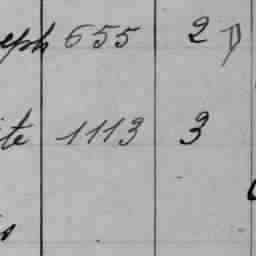 eph 655 2
te 1113 3